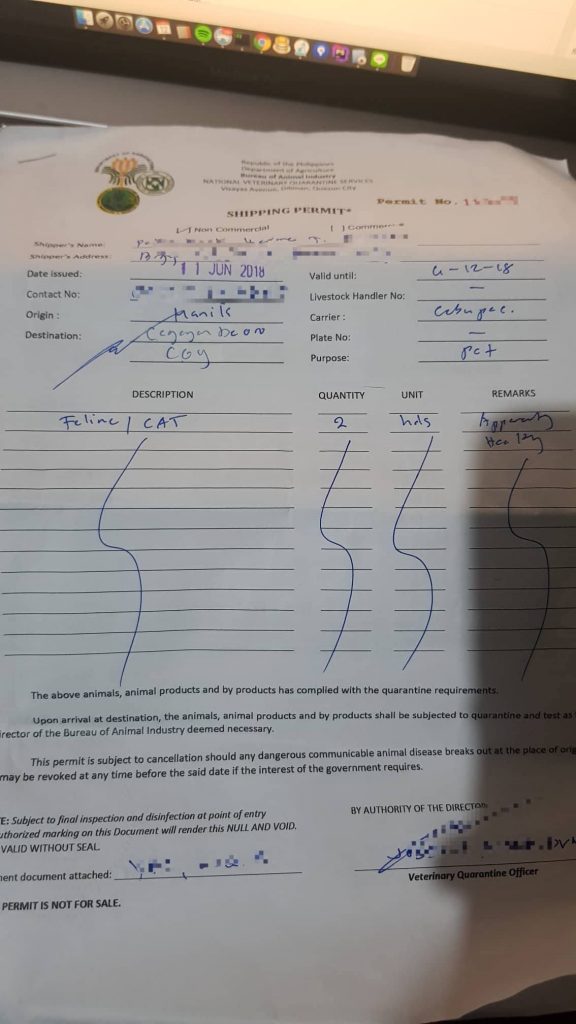 Republic of the Philippines
Department of Agriculture
Bureau of Animal Industry
NATIONAL VETERINARY QUARANTINE SERVICES
Visayas Avenue, Diliman, Quezon City
Permit No.
SHIPPING PERMIT*
[✓] Non Commercial [ ] Commerc
Shipper's Name:
Shipper's Address: Brgy
Date issued: 11 JUN 2018 Valid until: 6-12-18
Contact No: Livestock Handler No: —
Origin : Manila Carrier : Cebu pac.
Destination: Cagayan De Oro Plate No: —
CGY Purpose: pet
DESCRIPTION QUANTITY UNIT REMARKS
Feline / CAT 2 hds Apparently
Healthy
The above animals, animal products and by products has complied with the quarantine requirements.
Upon arrival at destination, the animals, animal products and by products shall be subjected to quarantine and test as
irector of the Bureau of Animal Industry deemed necessary.
This permit is subject to cancellation should any dangerous communicable animal disease breaks out at the place of orig
may be revoked at any time before the said date if the interest of the government requires.
E: Subject to final inspection and disinfection at point of entry
uthorized marking on this Document will render this NULL AND VOID.
VALID WITHOUT SEAL.
BY AUTHORITY OF THE DIRECTOR:
ment document attached:
Veterinary Quarantine Officer
PERMIT IS NOT FOR SALE.